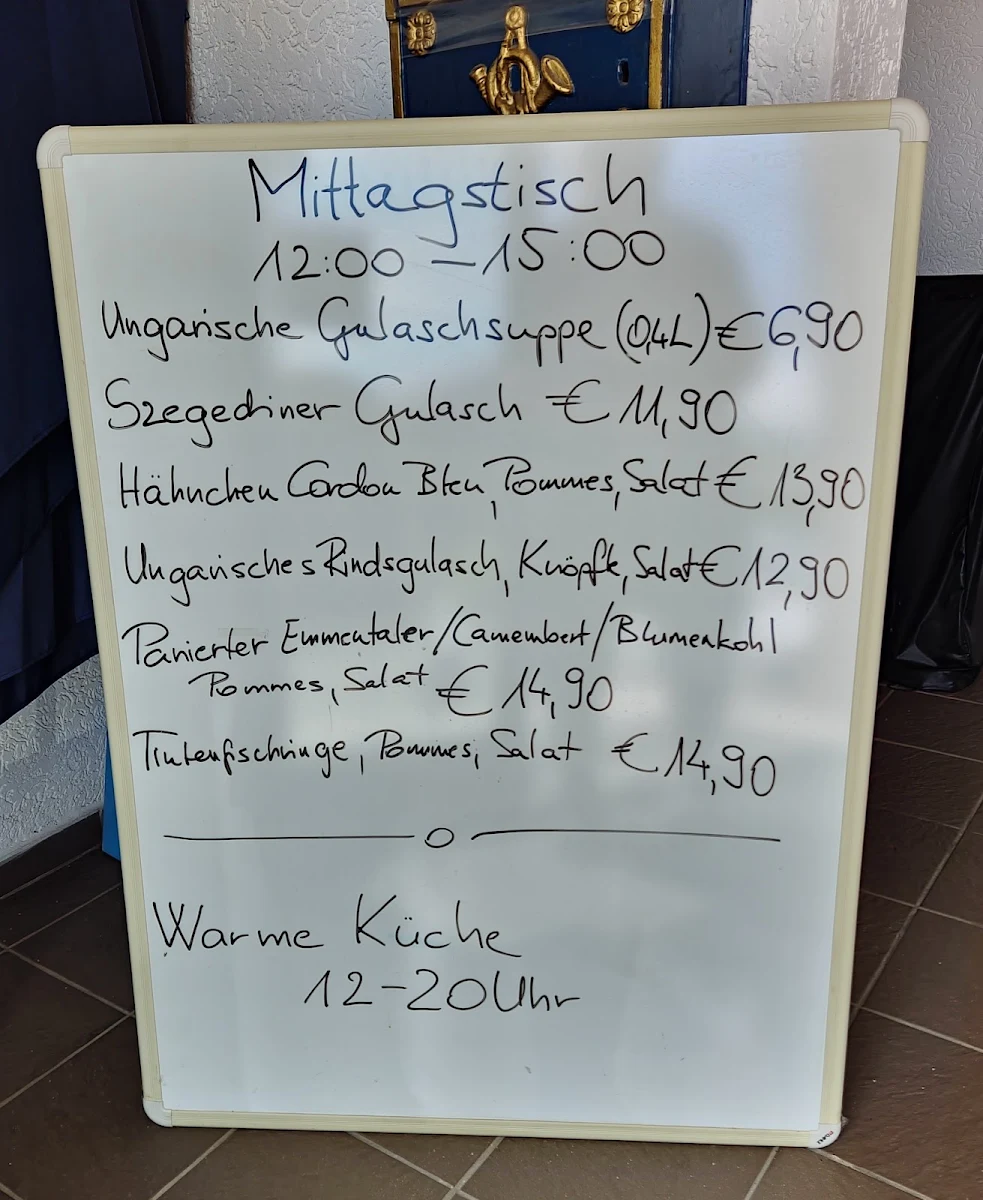 Mittagstisch
12:00 – 15:00
Ungarische Gulaschsuppe (0,4L) € 6,90
Szegediner Gulasch € 11,90
Hähnchen Cordon Bleu, Pommes, Salat € 13,90
Ungarisches Rindsgulasch, Knöpfle, Salat € 12,90
Panierter Emmentaler/Camembert/Blumenkohl
Pommes, Salat € 14,90
Tintenfischringe, Pommes, Salat € 14,90
Warme Küche
12-20 Uhr